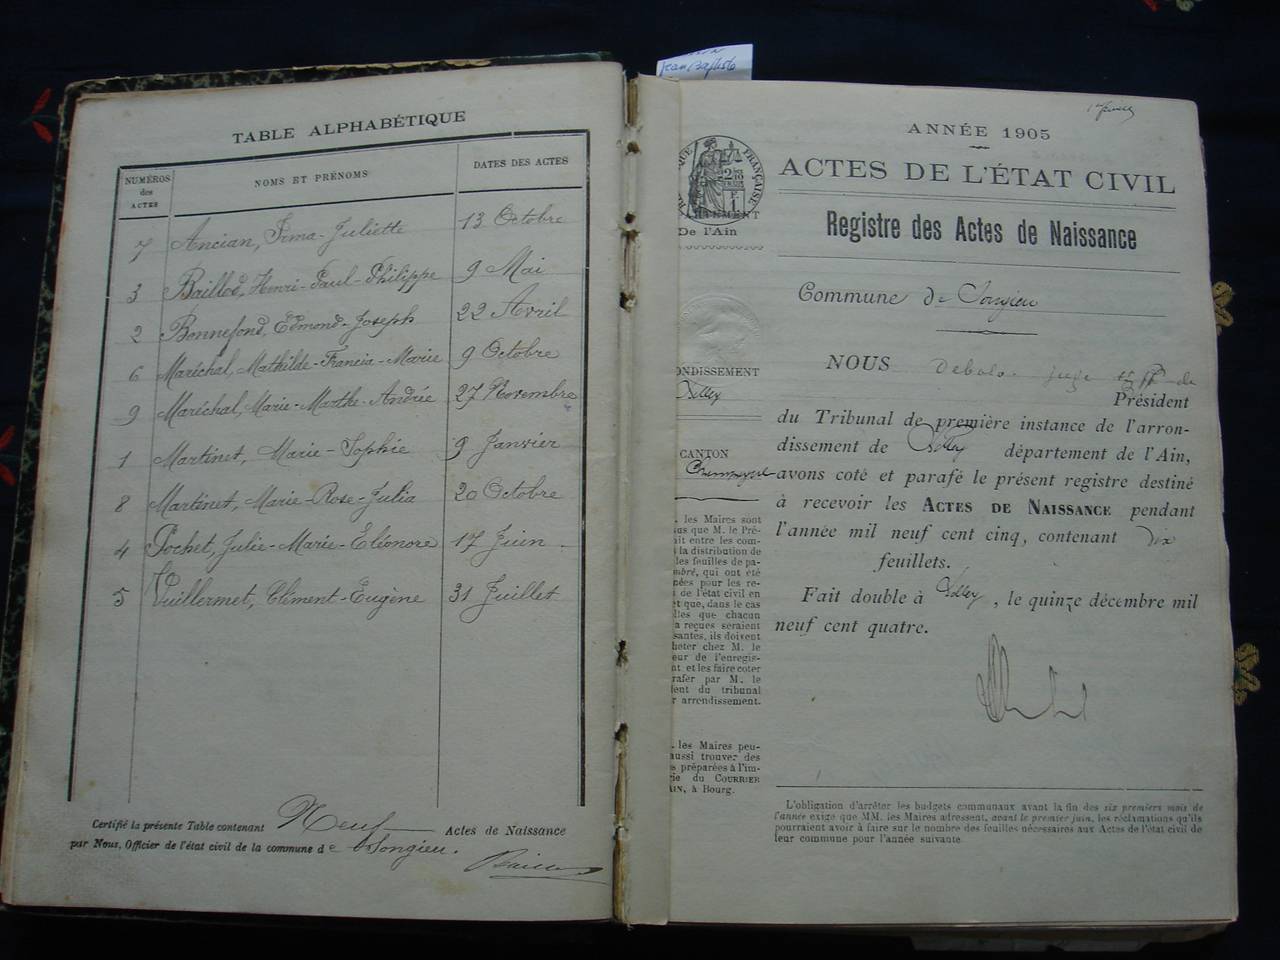 Jean Baptiste
TABLE ALPHABÉTIQUE
NUMÉROS des ACTES
NOMS ET PRÉNOMS
DATES DES ACTES
7 Ancian, Irma-Juliette 13 Octobre
3 Baillod, Henri-Paul-Philippe 9 Mai
2 Bonnefond, Edmond-Joseph 22 Avril
6 Maréchal, Mathilde-Francia-Marie 9 Octobre
9 Maréchal, Marie-Marthe-Andrée 27 Novembre
1 Martinet, Marie-Sophie 9 Janvier
8 Martinet, Marie-Rose-Julia 20 Octobre
4 Pochet, Julie-Marie-Eléonore 17 Juin
5 Vuillermet, Climent-Eugène 31 Juillet
Certifié la présente Table contenant Neuf Actes de Naissance
par Nous, Officier de l'état civil de la commune de Songieu.
ANNÉE 1905
ACTES DE L'ÉTAT CIVIL
Registre des Actes de Naissance
Commune de Songieu
NOUS juge
Président
du Tribunal de première instance de l'arron-
dissement de Belley département de l'Ain,
avons coté et parafé le présent registre destiné
à recevoir les ACTES DE NAISSANCE pendant
l'année mil neuf cent cinq, contenant dix
feuillets.
Fait double à Belley, le quinze décembre mil
neuf cent quatre.
L'obligation d'arrêter les budgets communaux avant la fin des six premiers mois de
l'année exige que MM. les Maires adressent, avant le premier juin, les réclamations qu'ils
pourraient avoir à faire sur le nombre des feuilles nécessaires aux Actes de l'état civil de
leur commune pour l'année suivante
QUE FRANÇAISE
2
De l'Ain
ONDISSEMENT
Belley
CANTON
. les Maires sont
us que M. le Pré-
ait entre les com-
la distribution de
les feuilles de pa-
mbré, qui ont été
nées pour les re-
de l'état civil en
et que, dans le cas
lles que chacun
a reçues seraient
santes, ils doivent
heter chez M. le
eur de l'enregis-
nt et les faire coter
rafer par M. le
ent du tribunal
r arrendissement.
. les Maires peu-
aussi trouver des
s préparées à l'im-
ie du COURRIER
AIN, à Bourg.